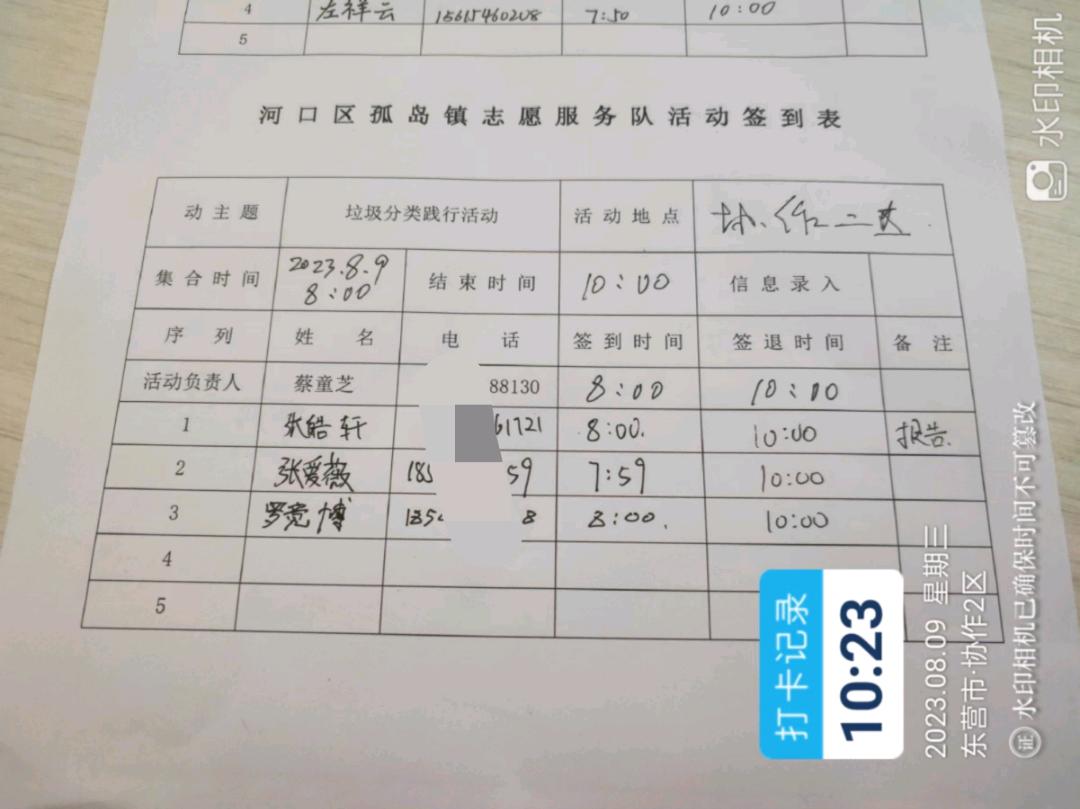 4 左祥云 15615460208 7:50 10:00
5
河口区孤岛镇志愿服务队活动签到表
动主题 垃圾分类践行活动 活动地点 协作二区
集合时间 2023.8.9 8:00 结束时间 10:00 信息录入
序列 姓名 电话 签到时间 签退时间 备注
活动负责人 蔡童芝 88130 8:00 10:00
1 张皓轩 61721 8:00. 10:00 报告.
2 张爱薇 185 59 7:59 10:00
3 罗竞博 185 8 8:00. 10:00
4
5
打卡记录
10:23
2023.08.09 星期三
东营市·协作2区
证 水印相机已确保时间不可篡改
水印相机